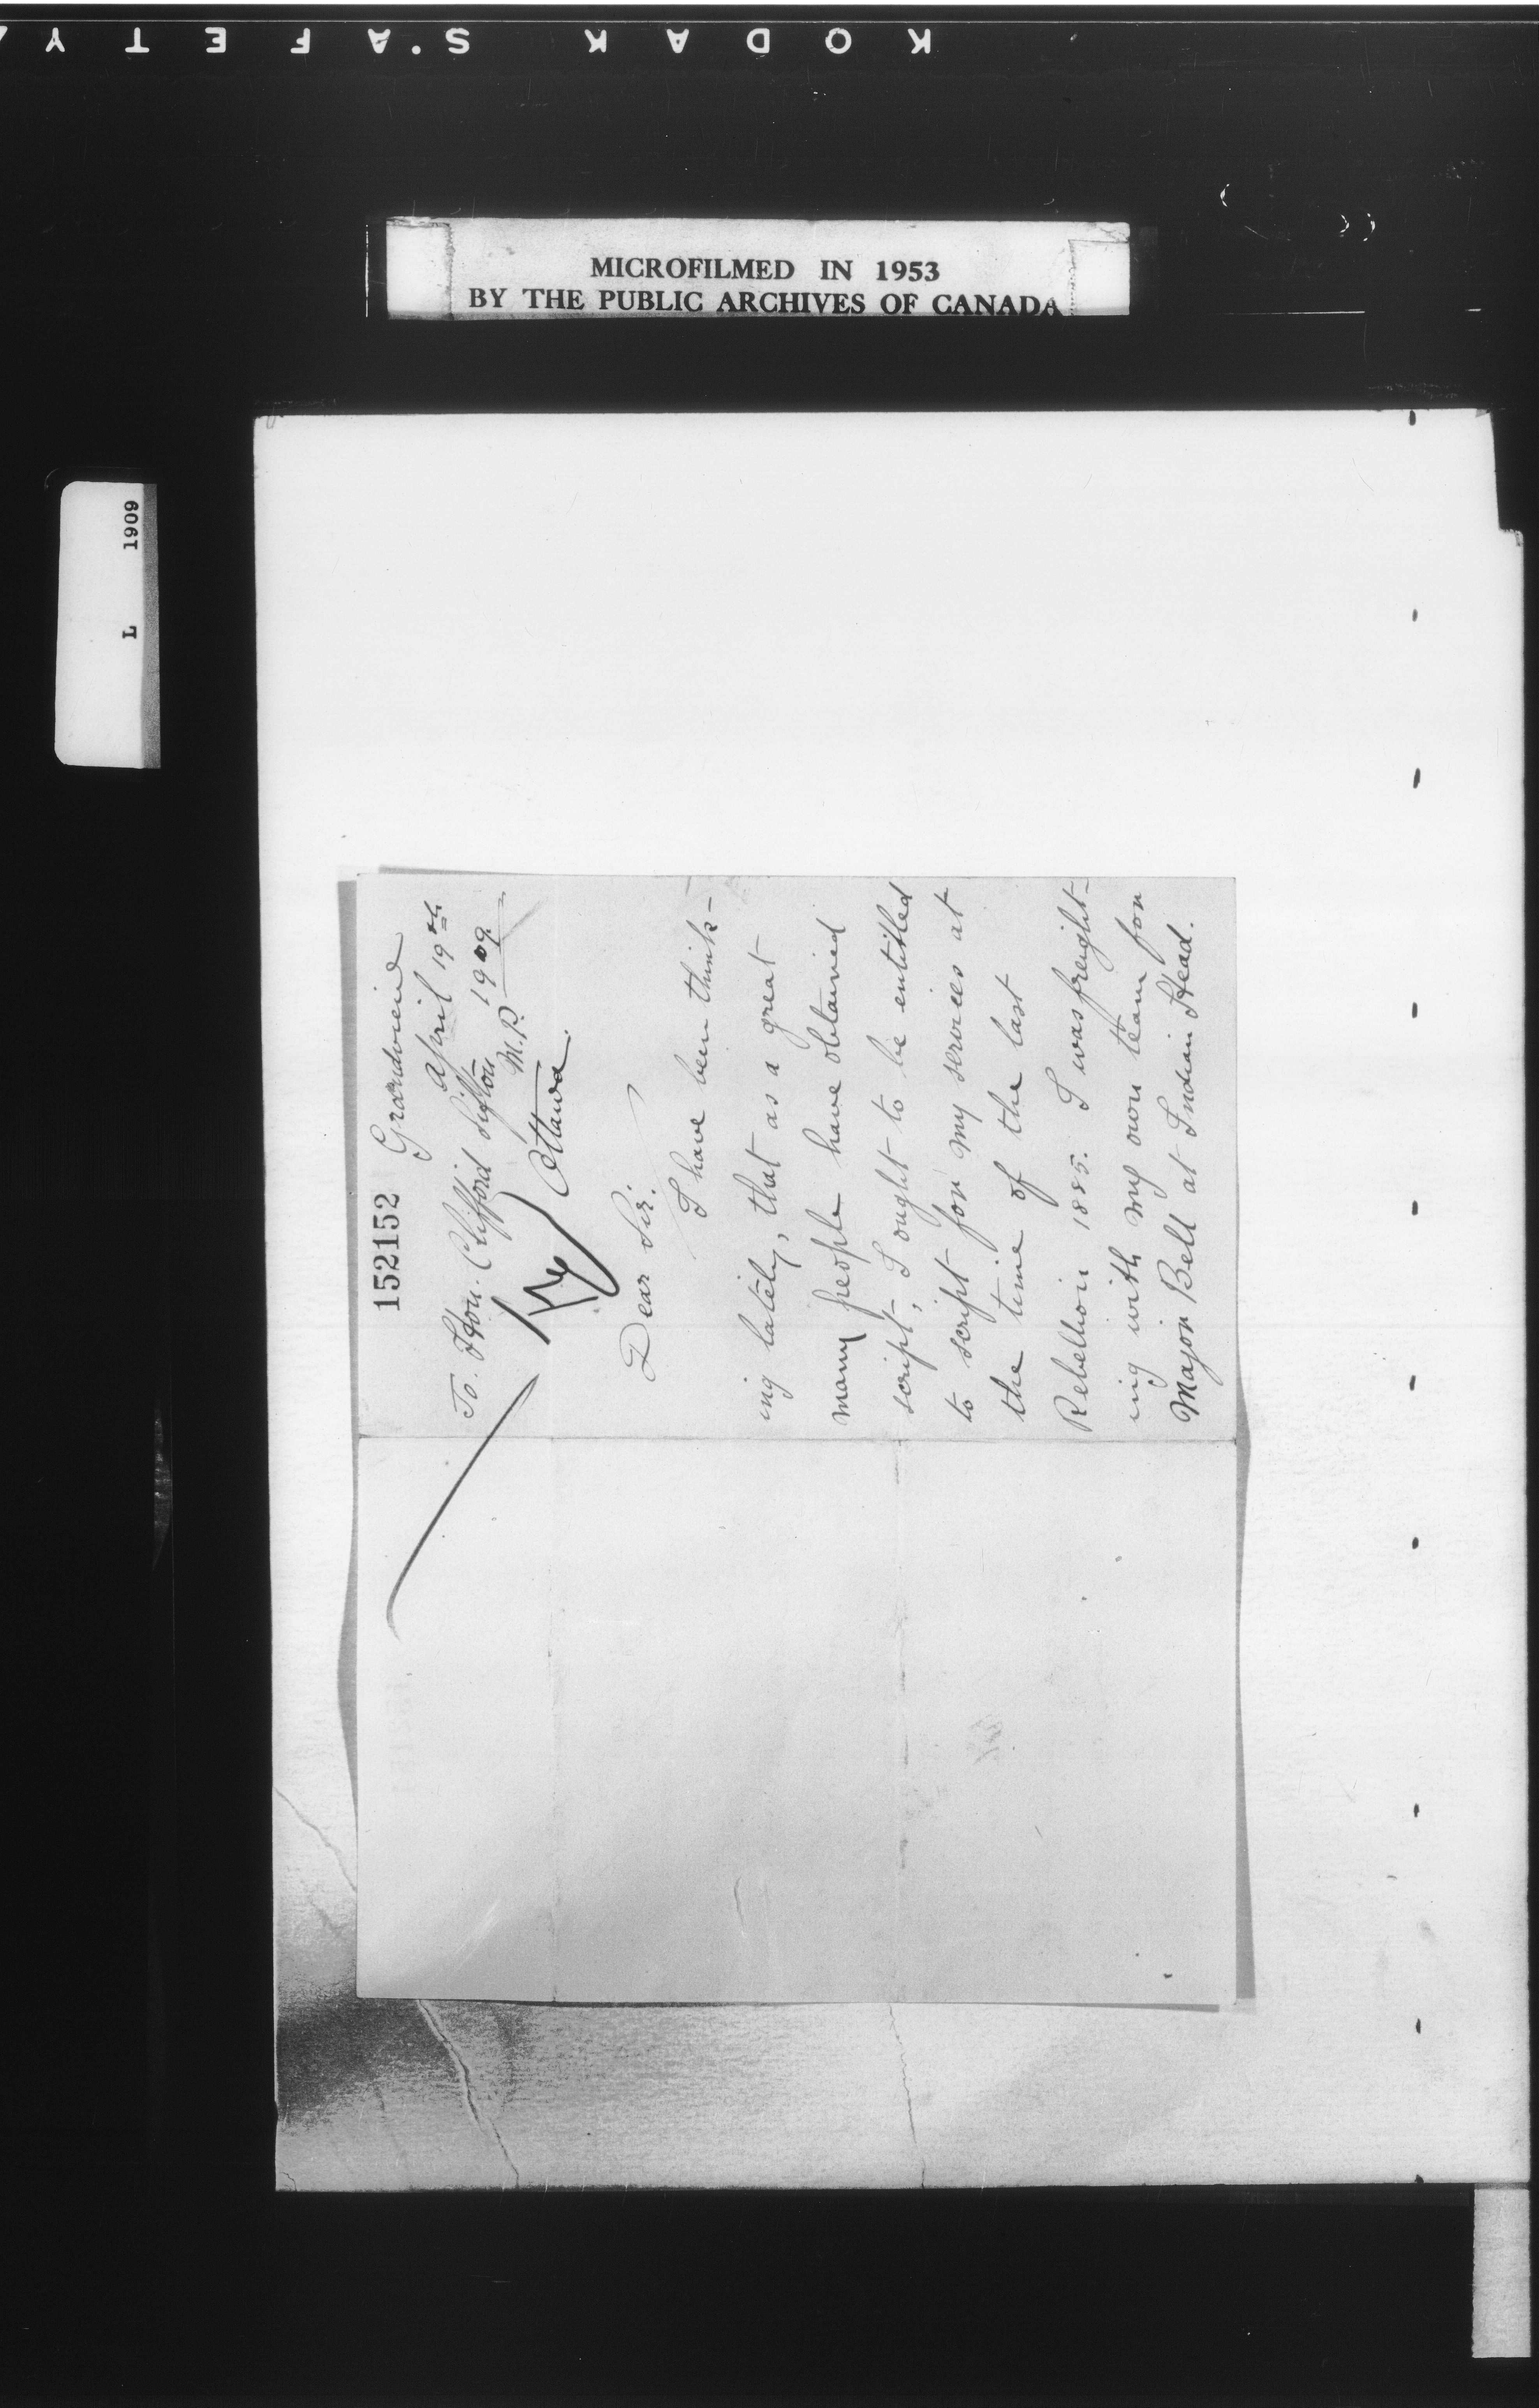 KODAK S'AFETY
MICROFILMED IN 1953
BY THE PUBLIC ARCHIVES OF CANADA
L 1909
152152
Grandview
April 19th
1909
To. Hon. Clifford Sifton
M.P.
Ottawa.
Dear Sir.
I have been think-
ing lately, that as a great
many people have obtained
script, I ought to be entitled
to script for my services at
the time of the last
Rebellion 1885. I was freight-
ing with my own team for
Major Bell at Indian Head.